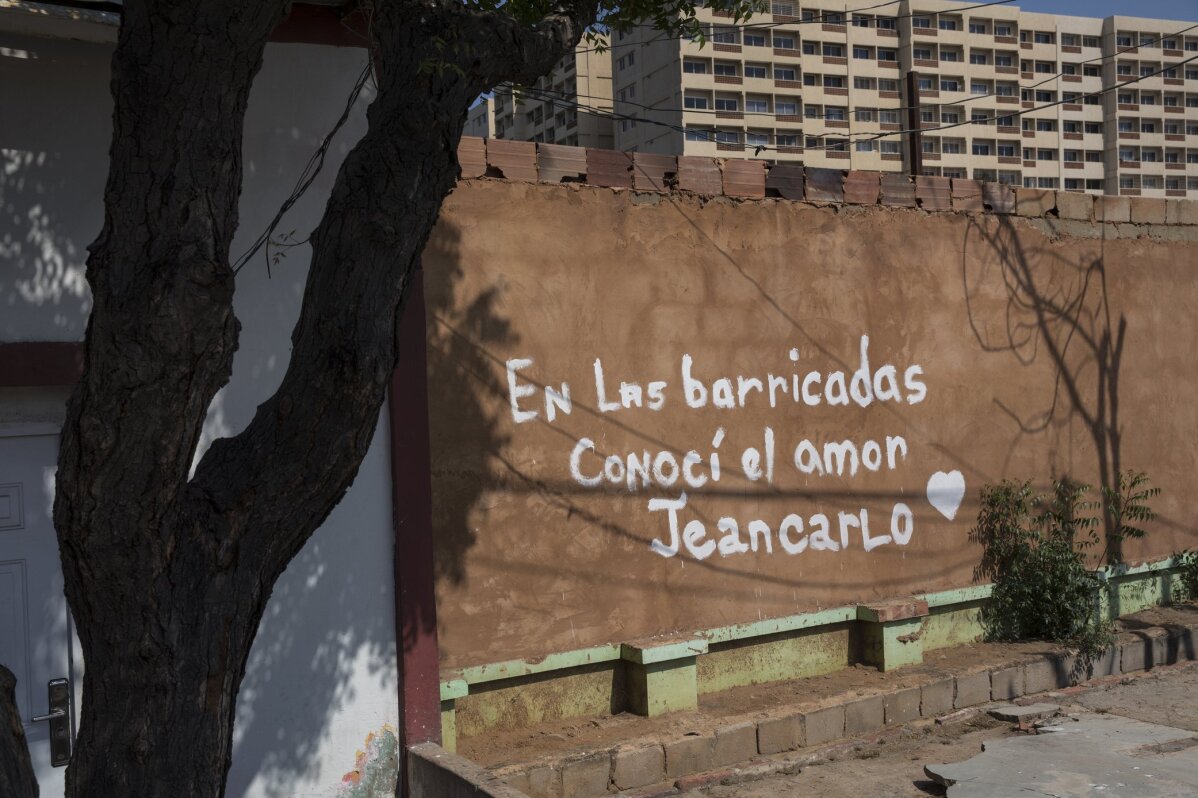 En Las barricadas
Conocí el amor
JeancarLo